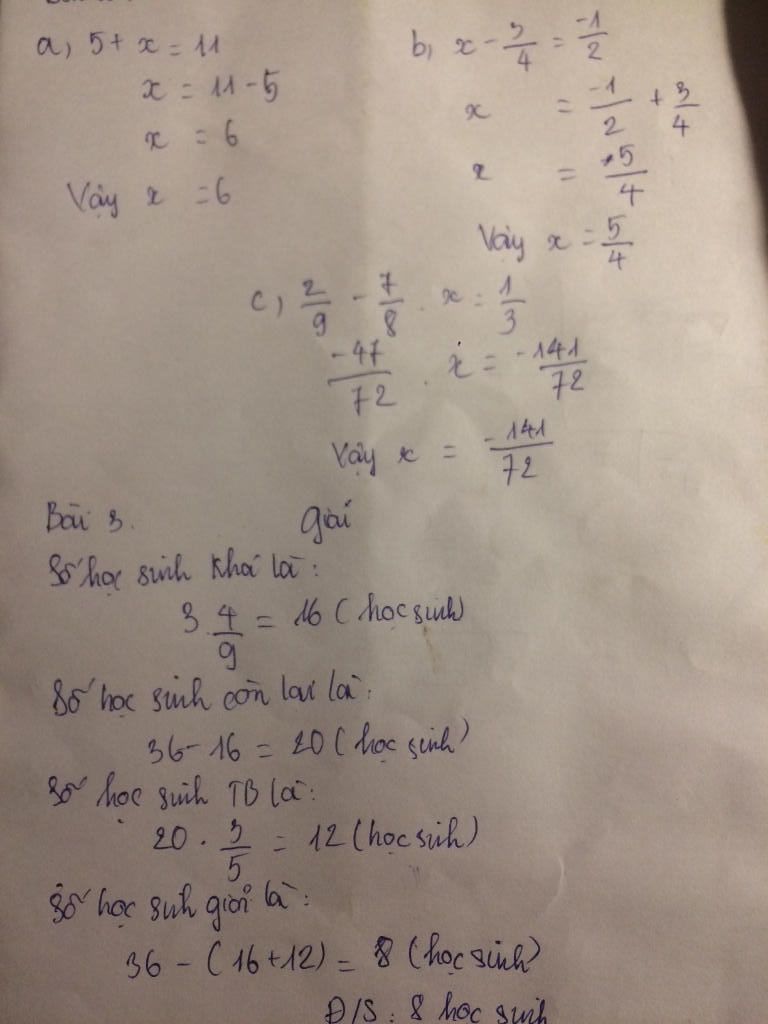 a, 5 + x = 11
x = 11 - 5
x = 6
Vậy x = 6
b, x - 3/4 = -1/2
x = -1/2 + 3/4
x = 5/4
Vậy x = 5/4
c, 2/9 - 7/8 . x = 1/3
-47/72 . x = -141/72
Vậy x = -141/72
Bài 3. Giải
Số học sinh khá là:
3 . 4/9 = 16 (học sinh)
Số học sinh còn lại là:
36 - 16 = 20 (học sinh)
Số học sinh TB là:
20 . 3/5 = 12 (học sinh)
Số học sinh giỏi là:
36 - (16 + 12) = 8 (học sinh)
Đ/S : 8 học sinh